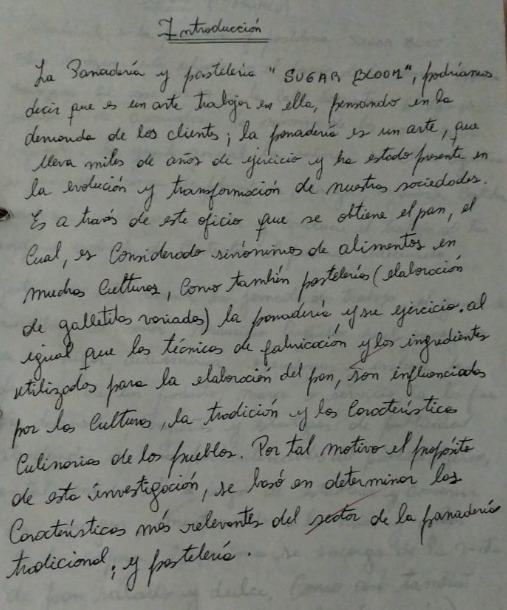 Introducción
La Panadería y pastelería "SUGAR BLOOM", podríamos
decir que es un arte trabajar en ella, pensando en la
demanda de los clientes; la panadería es un arte, que
lleva miles de años de ejercicio y ha estado presente en
la evolución y transformación de nuestras sociedades.
Es a través de este oficio que se obtiene el pan, el
Cual, es Considerado sinónimos de alimentos en
muchas Culturas, Como también pastelerías (elaboración
de galletitas variadas) la panadería y su ejercicio. al
igual que las técnicas de fabricación y los ingredientes
utilizados para la elaboración del pan, son influenciados
por las Culturas, la tradición y las Características
Culinarias de los pueblos. Por tal motivo el propósito
de esta investigación, se basó en determinar las
Características más relevantes del sector de la panadería
tradicional; y pastelería.